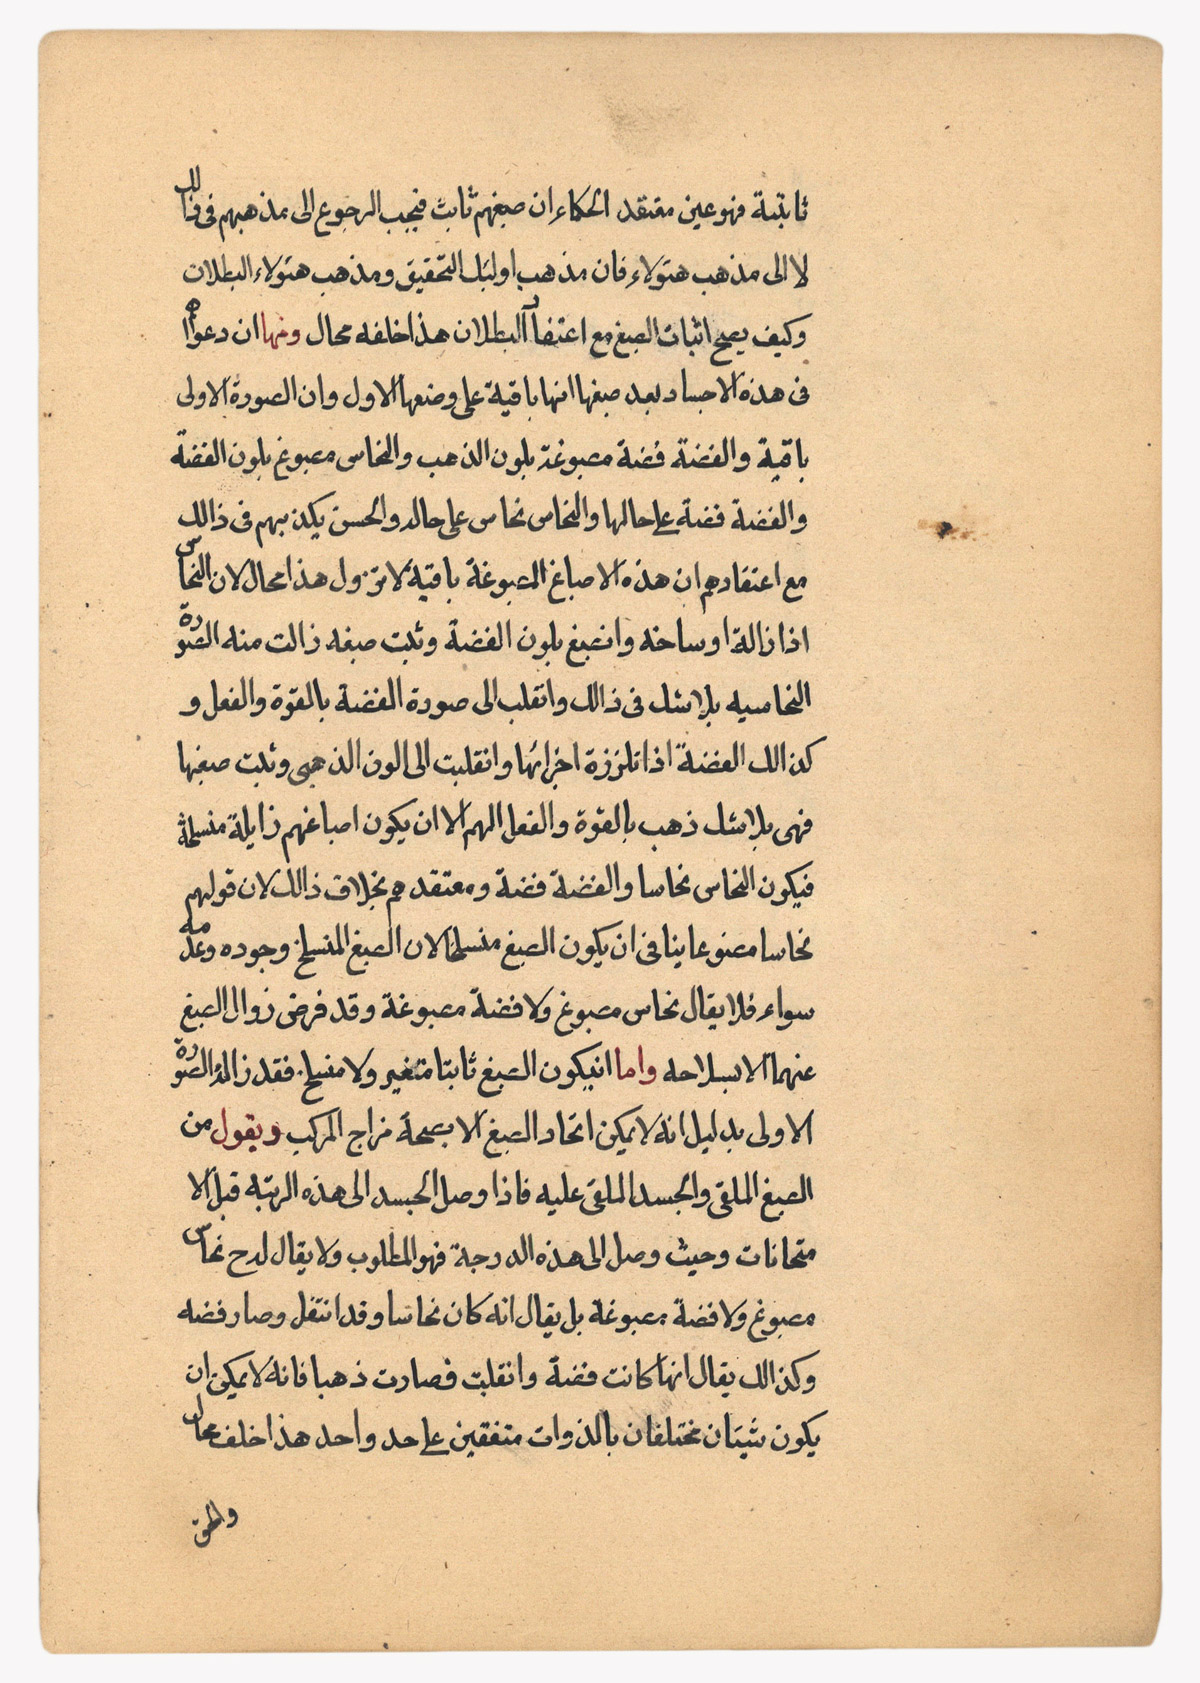 ثابتة فهو عين معتقد الحكماء ان صبغهم ثابث فيجب الرجوع الى مذهبهم فى ذالك
لا الى مذهب هئولاء فان مذهب اوليك التحقيق ومذهب هئولاء البطلان
وكيف يصح اثبات الصبغ مع اعتقاد البطلان هذا خلفه محال ومنها ان دعواه
فى هذه الاجساد بعد صبغها انها باقية على وضعها الاول وان الصورة الاولى
باقية والفضة فضة مصبوغة بلون الذهب والنحاس مصبوغ بلون الفضة
والفضة فضة على حالها والنحاس نحاس على حاله والحسن يكذبهم فى ذالك
مع اعتقادهم ان هذه الاصباغ المصبوغة باقية لا تزول هذا محال لان النحاس
اذا زالة اوساخه وانصبغ بلون الفضة وثبت صبغه زالت منه الصورة
النحاسيه بلا شك فى ذالك وانقلب الى صورة الفضة بالقوة والفعل و
كذالك الفضة اذا تلززة اجزائها وانقلبت الى الون الذهبى وثبت صبغها
فهى بلا شك ذهب بالقوة والفعل الهم الا ان يكون اصباغهم زايلة منسلخة
فيكون النحاس نحاسا والفضة فضة ومعتقدهم بخلاف ذالك لان قولهم
نحاسا مصبوغا ينافى ان يكون الصبغ منسلخا لان الصبغ المنسلخ وجوده وعدمه
سواء فلا يقال نحاس مصبوغ ولا فضة مصبوغة وقد فرض زوال الصبغ
عنهما لانسلاخه واما انيكون الصبغ ثابتا متغير ولا منسلخ فقد زالة الصورة
الاولى بدليل انه لا يمكن اتحاد الصبغ الا بصحة مزاج المركب ويقول من
الصبغ الملقى والجسد الملقى عليه فاذا وصل الجسد الى هذه الرتبة قبل الا
متحانات وحيث وصل الى هذه الدرجة فهو المطلوب ولا يقال له ح نحاس
مصبوغ ولا فضة مصبوغة بل يقال انه كان نحاسا وقد انتقل وصار فضه
وكذالك يقال انها كانت فضة وانقلبت فصارت ذهبا فانه لا يمكن ان
يكون شيئان مختلفان بالذوات متفقين على حد واحد هذا خلف محال
والحق